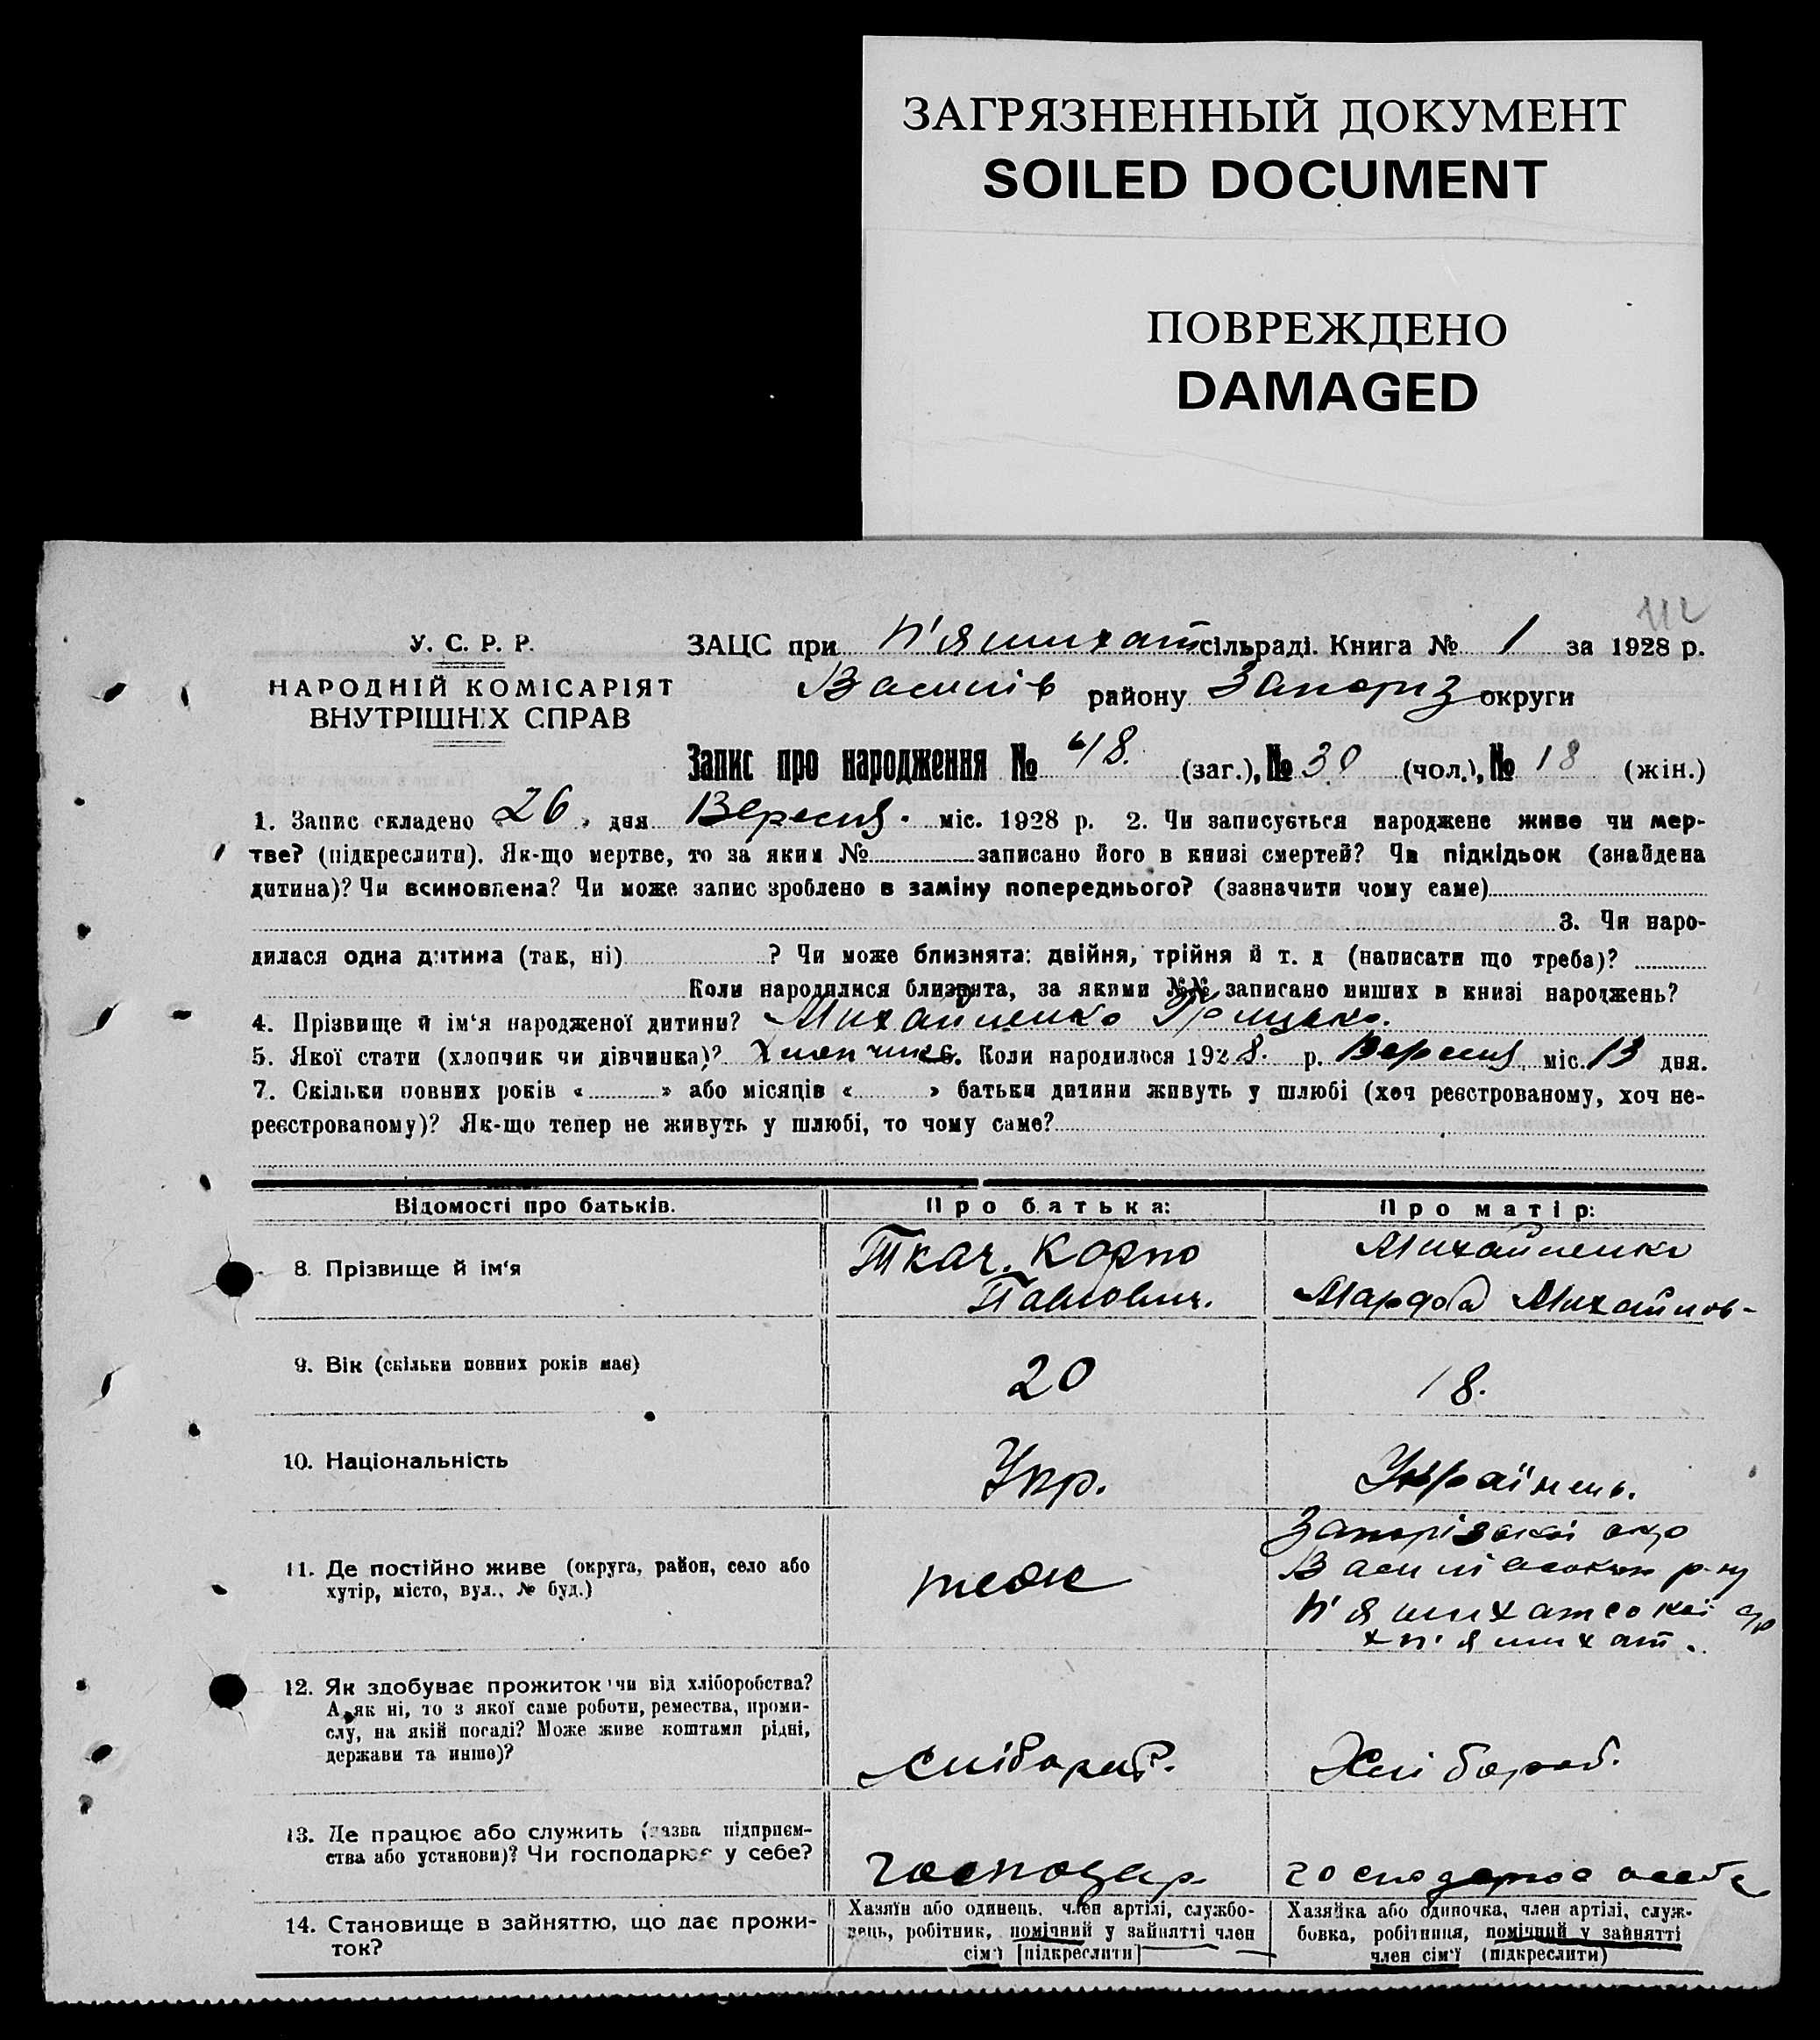 ЗАГРЯЗНЕННЫЙ ДОКУМЕНТ
SOILED DOCUMENT
ПОВРЕЖДЕНО
DAMAGED
112
У. С. Р. Р.
НАРОДНІЙ КОМІСАРІЯТ
ВНУТРІШНІХ СПРАВ
ЗАЦС при П'ятихат сільраді. Книга № 1 за 1928 р.
Василів району Запоріз округи
Запис про народження № 48. (заг.), № 30 (чол.), № 18 (жін.)
1. Запис складено 26 » дня Вересня. міс. 1928 р. 2. Чи записується народжене живе чи мер-
тве? (підкреслити). Як-що мертве, то за яким № записано його в книзі смертей? Чи підкідьок (знайдена
дитина)? Чи всиновлена? Чи може запис зроблено в заміну попереднього? (зазначити чому саме)
3. Чи наро-
дилася одна дитина (так, ні) ? Чи може близнята: двійня, трійня й т. д (написати що треба)?
Коли народилися близнята, за якими №№ записано инших в книзі народжень?
4. Прізвище й ім'я народженої дитини? Михайленко Грицько.
5. Якої стати (хлопчик чи дівчинка)? Хлопчик 6. Коли народилося 1928. р. Вересня міс. 13 дня.
7. Скільки повних років « » або місяців « » батьки дитини живуть у шлюбі (хоч реєстрованому, хоч не-
реєстрованому)? Як-що тепер не живуть у шлюбі, то чому саме?
Відомості про батьків. Про батька: Про матір:
8. Прізвище й ім'я
Ткач. Карпо
Павлович.
Михайленко
Михайлов-
9. Вік (скільки повних років має) 20 18.
10. Національність Укр. Українець.
11. Де постійно живе (округа, район, село або
хутір, місто, вул., № буд.)
теж
Запорізькоі окр
Василівського р-ну
П'ятихатської с/р
х П'ятихат.
12. Як здобуває прожиток чи від хліборобства?
А як ні, то з якої саме роботи, ремества, проми-
слу, на якій посаді? Може живе коштами рідні,
держави та инше)?
хлібороб.
Хлібороб.
13. Де працює або служить (назва підприєм-
ства або установи)? Чи господарює у себе?
господар.
господарює
14. Становище в зайняттю, що дає прожи-
ток?
Хазяїн або одинець, член артілі, службо-
вець, робітник, помічний у зайнятті член
сім'ї [підкреслити]
Хазяйка або одиночка, член артілі, служ-
бовка, робітниця, помічний у зайнятті
член сім'ї (підкреслити)